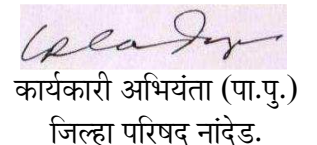 कार्यकारी अभियंता (पा.पु.)
जिल्हा परिषद नांदेड.